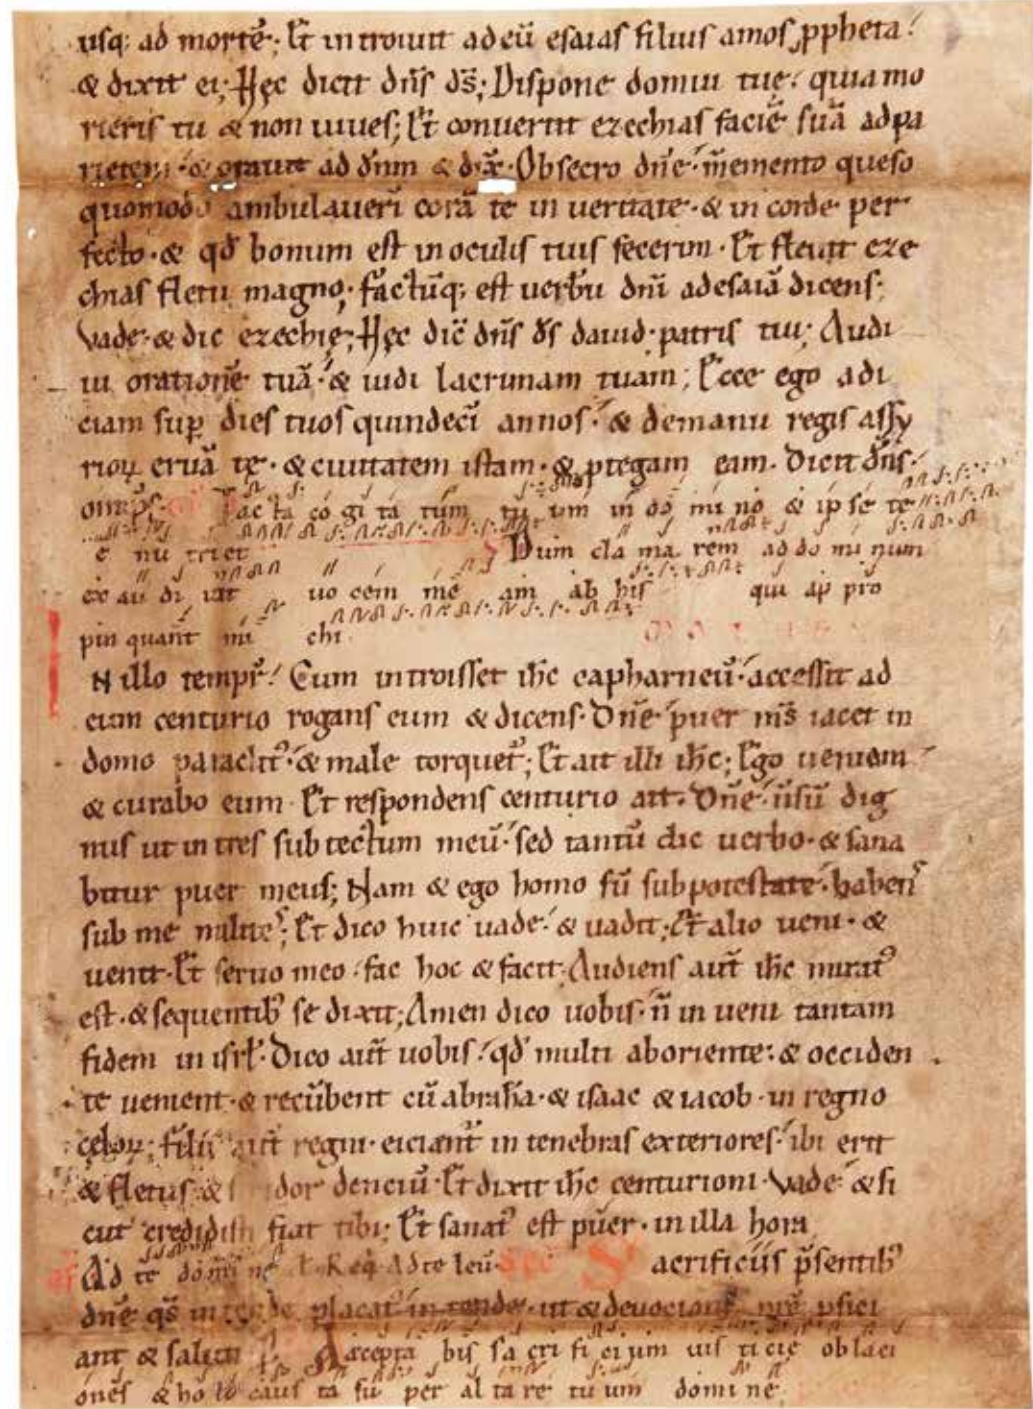 usq; ad mortē; Et introiuit ad eū esaias filius amos ꝓpheta.
& dixit ei; Hęc dicit dn̄s ds̄; Dispone domui tuę. quia mo
rieris tu & non uiues; Et conuertit ezechias faciē suā ad pa
rietem. & orauit ad dn̄m & dix̄. Obsecro dn̄e. m̄emento queso
quomodo ambulauerī corā te in ueritate. & in corde per
fecto. & qd̄ bonum est in oculis tuis fecerim. Et fleuit eze
chias fletu magno. factūq; est uerbū dn̄i ad esaiā dicens.
Vade. & dic ezechię; Hęc dic̄ dn̄s ds̄ dauid. patris tui; Audi
ui orationē tuā. & uidi lacrimam tuam; Ecce ego adi
ciam suꝑ dies tuos quindecī annos. & de manu regis assy
rioꝝ eruā te. & ciuitatem istam. & ꝓtegam eam. Dicit dn̄s.
omp̄s. Iacta cogita tum tuum in do mi no & ip se te
e nu triet Dum cla ma rem ad do mi num
ex au di uit uo cem me am ab his qui ap pro
pin quant mi chi
IN illo tempr̄. Cum introisset ih̄c capharneū. accessit ad
eum centurio rogans eum & dicens. Dn̄e puer ms̄ iacet in
domo paraclit᾽. & male torquet᾽; Et ait illi ih̄c; Ego ueniam
& curabo eum. Et respondens centurio ait. Dn̄e. n̄ sū dig
nus ut intres sub tectum meū. sed tantū dic uerbo. & sana
bitur puer meus; Nam & ego homo sū sub potestate. haben᾽
sub me milite᾽; Et dico huic uade. & uadit; Et alio ueni. &
uenit. Et seruo meo. fac hoc & facit; Audiens aut̄ ih̄c mirat᾽
est. & sequentib᾽ se dixit; Amen dico uobis. n̄ inueni tantam
fidem in isrl̄. Dico aut̄ uobis. qd̄ multi ab oriente. & occiden
te uenient. & recūbent cū abrah̄a. & isaac & iacob. in regno
cęloꝝ; filii aut̄ regni. eiciant᾽ in tenebras exteriores. ibi erit
& fletus. & dor denciū. Et dixit ih̄c centurioni. Vade. & si
cut credidisti fiat tibi; Et sanat᾽ est puer. in illa hora
Ad te domi ne Req̄. Ad te leu. Sacrificiis p̄sentib᾽
dn̄e qs̄ intende placat᾽ intende. ut & deuocioni nrē ꝓfici
ant & saluti Accepta bis sa cri fi ci um ius ti cie oblaci
ones & ho lo caus ta su per al ta re tu um domi ne